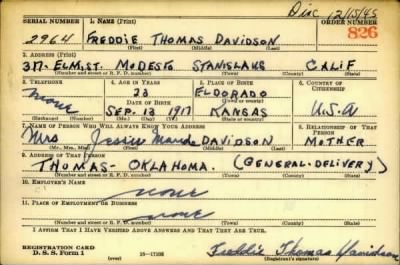 Disc 12/15/45
SERIAL NUMBER 1. NAME (Print) ORDER NUMBER
2964 FREDDIE THOMAS DAVIDSON 826
(First) (Middle) (Last)
2. ADDRESS (Print)
317-ELM.ST. MODESTO STANISLAUS CALIF
(Number and street or R. F. D. number) (Town) (County) (State)
3. TELEPHONE 4. AGE IN YEARS 5. PLACE OF BIRTH 6. COUNTRY OF CITIZENSHIP
none 23 ELDORADO
DATE OF BIRTH (Town or county)
SEP. 13 1917 KANSAS U.S.A
(Exchange) (Number) (Mo.) (Day) (Yr.) (State or country)
7. NAME OF PERSON WHO WILL ALWAYS KNOW YOUR ADDRESS 8. RELATIONSHIP OF THAT PERSON
Mrs Jessie Maude DAVIDSON MOTHER
(Mr., Mrs., Miss) (First) (Middle) (Last)
9. ADDRESS OF THAT PERSON
THOMAS- OKLAHOMA. (GENERAL-DELIVERY)
(Number and street or R. F. D. number) (Town) (County) (State)
10. EMPLOYER'S NAME
none
11. PLACE OF EMPLOYMENT OR BUSINESS
none
(Number and street or R. F. D. number) (Town) (County) (State)
I AFFIRM THAT I HAVE VERIFIED ABOVE ANSWERS AND THAT THEY ARE TRUE.
REGISTRATION CARD
D. S. S. Form 1 (over) Freddie Thomas Davidson
(Registrant's signature)